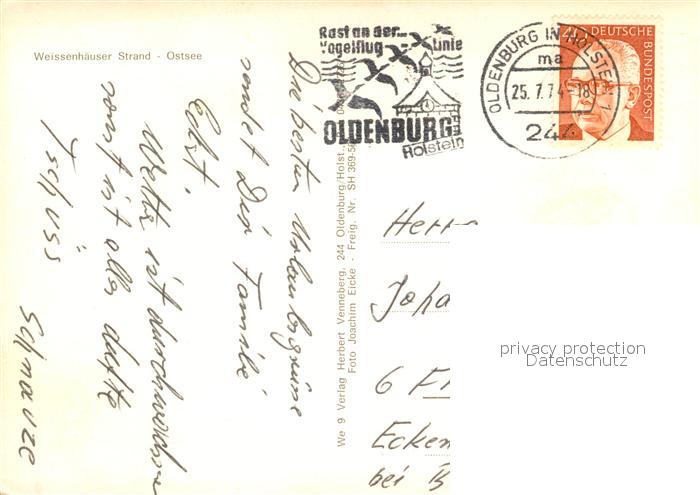 Weissenhäuser Strand - Ostsee
Rast an der...
Vogelflug Linie
OLDENBURG
Holstein
OLDENBURG IN HOLSTEIN 1
ma
25.7.74-18
244
40 DEUTSCHE BUNDESPOST
Die besten Urlaubsgrüsse
sendet Dir Familie
Eckst.
Wetter ist durchwachsen
sonst ist alles dufte
Tschüss
Schnauze
We 9 Verlag Herbert Venneberg, 244 Oldenburg/Holst.
Foto Joachim Eicke - Freig. Nr. SH 369-5
Herr
Joha
6 F
Ecken
bei B
privacy protection
Datenschutz